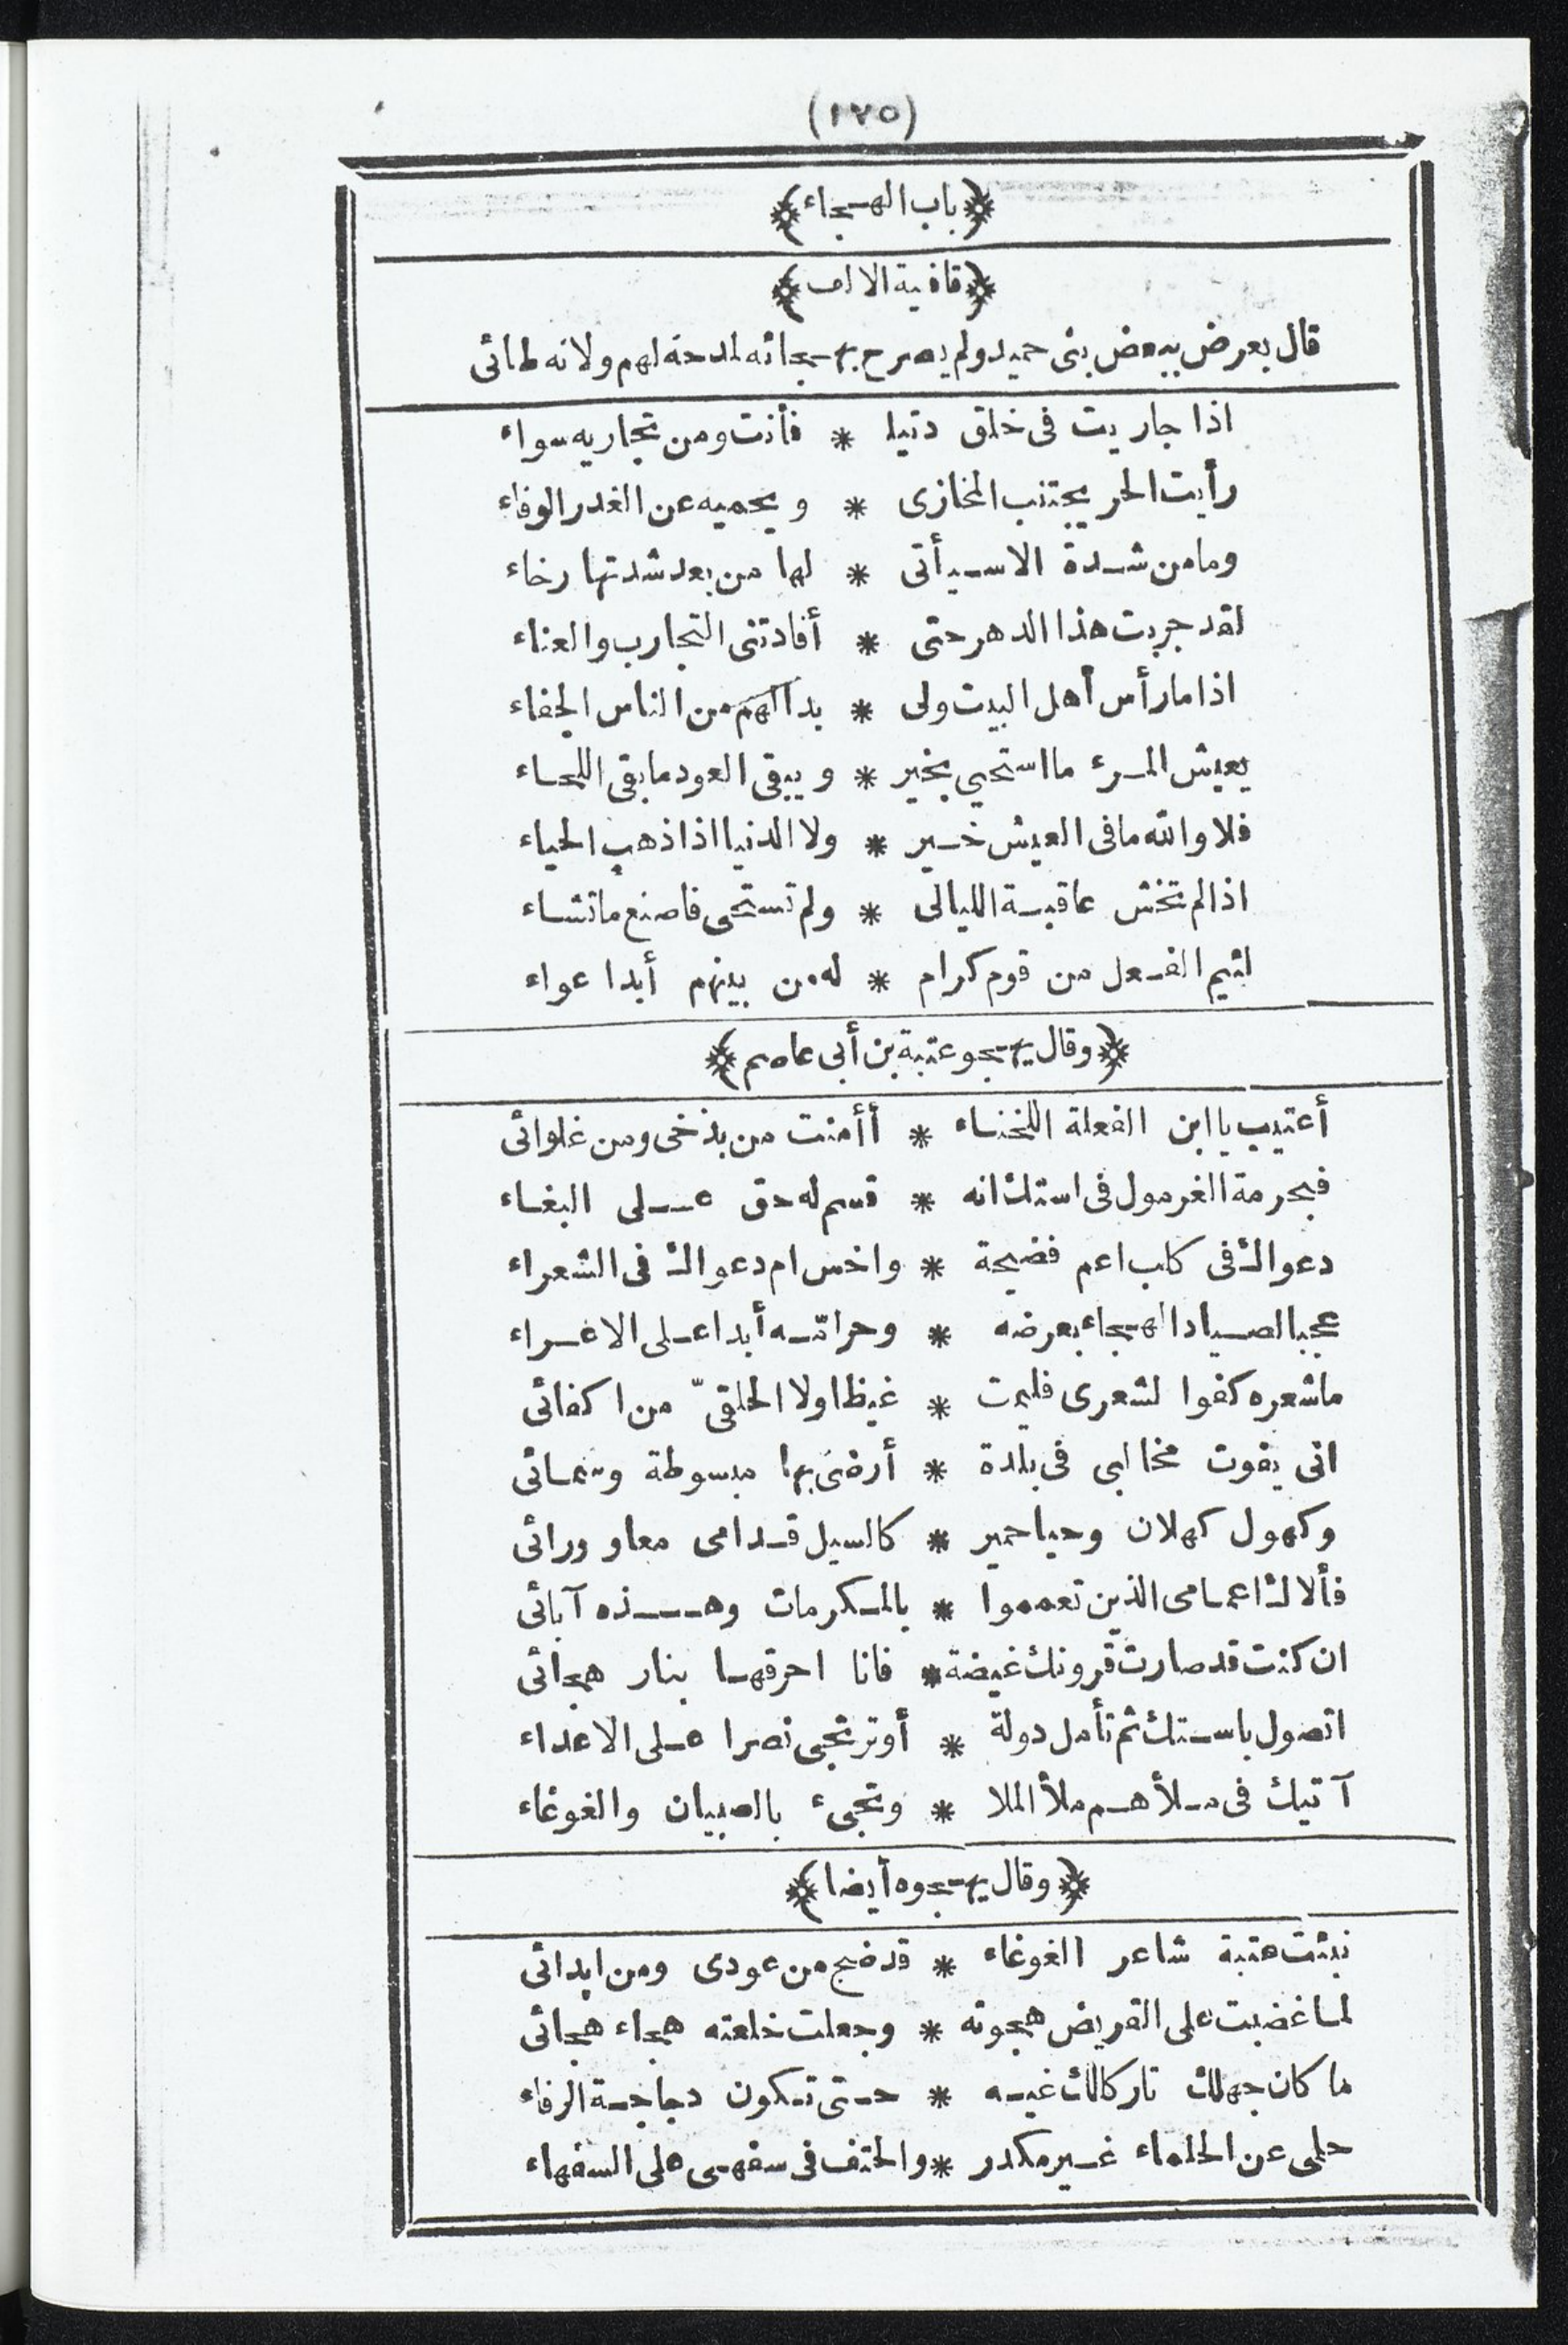 (١٧٥)
﴿باب الهجاء﴾
﴿قافية الالف﴾
قال يعرض ببعض بنى حميد ولم يصرح بهجائه لمدحة لهم ولانه طائى
اذا جاريت فى خلق دنيا * فأنت ومن تجاريه سواء
رأيت الحر يجتنب المخازى * ويحميه عن الغدر الوفاء
وما من شدة الا سيأتى * لها من بعد شدتها رخاء
لقد جربت هذا الدهر حتى * أفادتنى التجارب والعناء
اذا ما رأس أهل البيت ولى * بدا لهم من الناس الجفاء
يعيش المرء ما استحيى بخير * ويبقى العود ما بقى اللحاء
فلا والله ما فى العيش خير * ولا الدنيا اذا ذهب الحياء
اذا لم تخش عاقبة الليالى * ولم تستحى فاصنع ما تشاء
لئيم الفعل من قوم كرام * له من بينهم أبدا عواء
﴿وقال يهجو عتبة بن أبى عاصم﴾
أعتيب يا ابن الفعلة اللخناء * أأمنت من بذخى ومن غلوائى
فبحرمة الغرمول فى استك انه * قسم له حق على البغاء
دعواك فى كلب اعم فضيحة * واخس ام دعواك فى الشعراء
عجبا لصياد الهجاء بعرضه * وحراته أبدا على الاغراء
ما شعره كفوا لشعرى فليمت * غيظا ولا الحلقىّ من اكفائى
انى يفوت مخالبى فى بلدة * أرضى بها مبسوطة وسمائى
وكهول كهلان وحيا حمير * كالسيل قدامى معا وورائى
فألاك اعمامى الذين تعمموا * بالمكرمات وهذه آبائى
ان كنت قد صارت قرونك غيضة * فانا احرقها بنار هجائى
اتصول باستك ثم تأمل دولة * أو ترتجى نصرا على الاعداء
آتيك فى ملأ هم ملأ الملا * وتجىء بالصبيان والغوغاء
﴿وقال يهجوه أيضا﴾
نبئت عتبة شاعر الغوغاء * قد ضج من عودى ومن ابدائى
لما غضبت على القريض هجوته * وجعلت خلعته هجاء هجائى
ما كان جهلك تاركا لك غيه * حتى تكون دجاجة الرفاء
حلمى عن الحلماء غير مكدر * والحتف فى سفهى على السفهاء